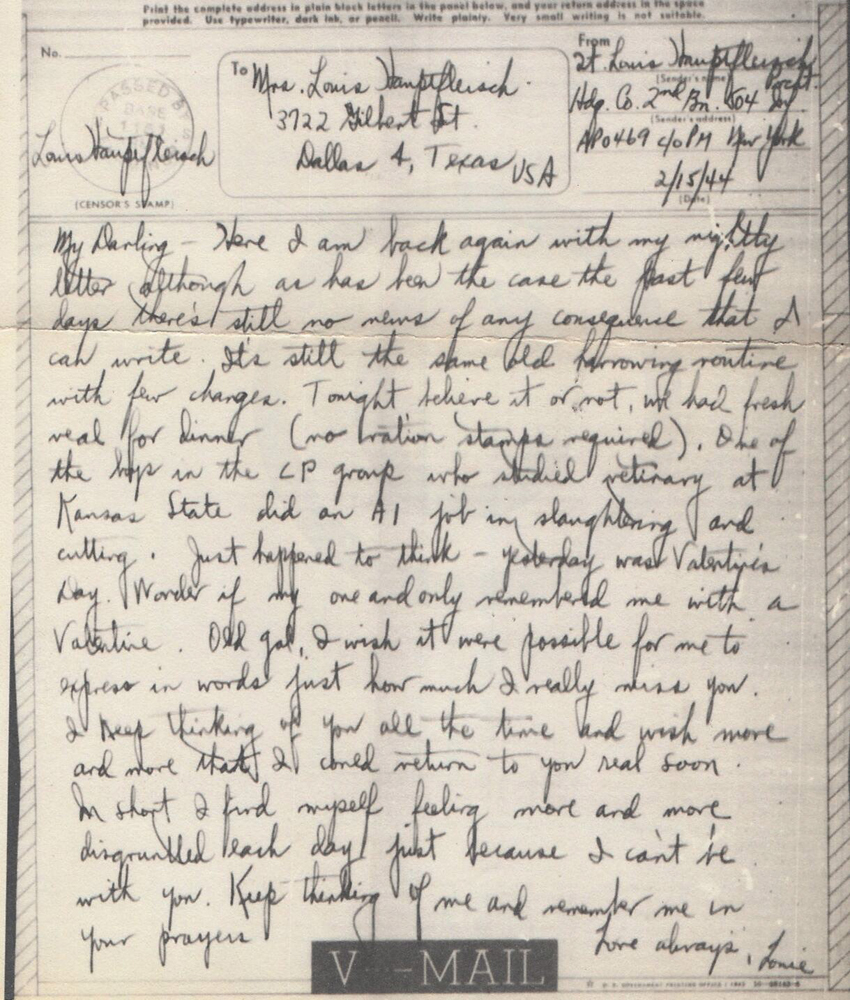 Print the complete address in plain block letters in the panel below, and your return address in the space
provided. Use typewriter, dark ink, or pencil. Write plainly. Very small writing is not suitable.
No.
PASSED BY
BASE
Louis Hauptfleisch
(CENSOR'S STAMP)
To Mrs. Louis Hauptfleisch
3722 Gilbert St.
Dallas 4, Texas
USA
From
Lt. Louis Hauptfleisch
(Sender's name)
Hdq. Co. 2nd Bn. 504
(Sender's address)
APO 469 c/o PM New York
2/15/44
(Date)
My Darling - Here I am back again with my nightly
letter although as has been the case the past few
days there's still no news of any consequence that I
can write. It's still the same old harrowing routine
with few changes. Tonight believe it or not, we had fresh
veal for dinner (no ration stamps required). One of
the boys in the CP group who studied vetinary at
Kansas State did an A1 job in slaughtering and
cutting. Just happened to think - yesterday was Valentine's
Day. Wonder if my one and only remembered me with a
Valentine. Old gal, I wish it were possible for me to
express in words just how much I really miss you.
I keep thinking of you all the time and wish more
and more that I could return to you real soon.
In short I find myself feeling more and more
disgruntled each day just because I can't be
with you. Keep thinking of me and remember me in
your prayers
Love always, Louie
V···-MAIL
U. S. GOVERNMENT PRINTING OFFICE